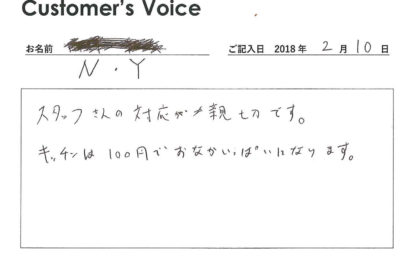 Customer's Voice
お名前 ご記入日 2018年 2月 10日
N・Y
スタッフさんの対応が親切です。
キッチンは100円でおなかいっぱいになります。